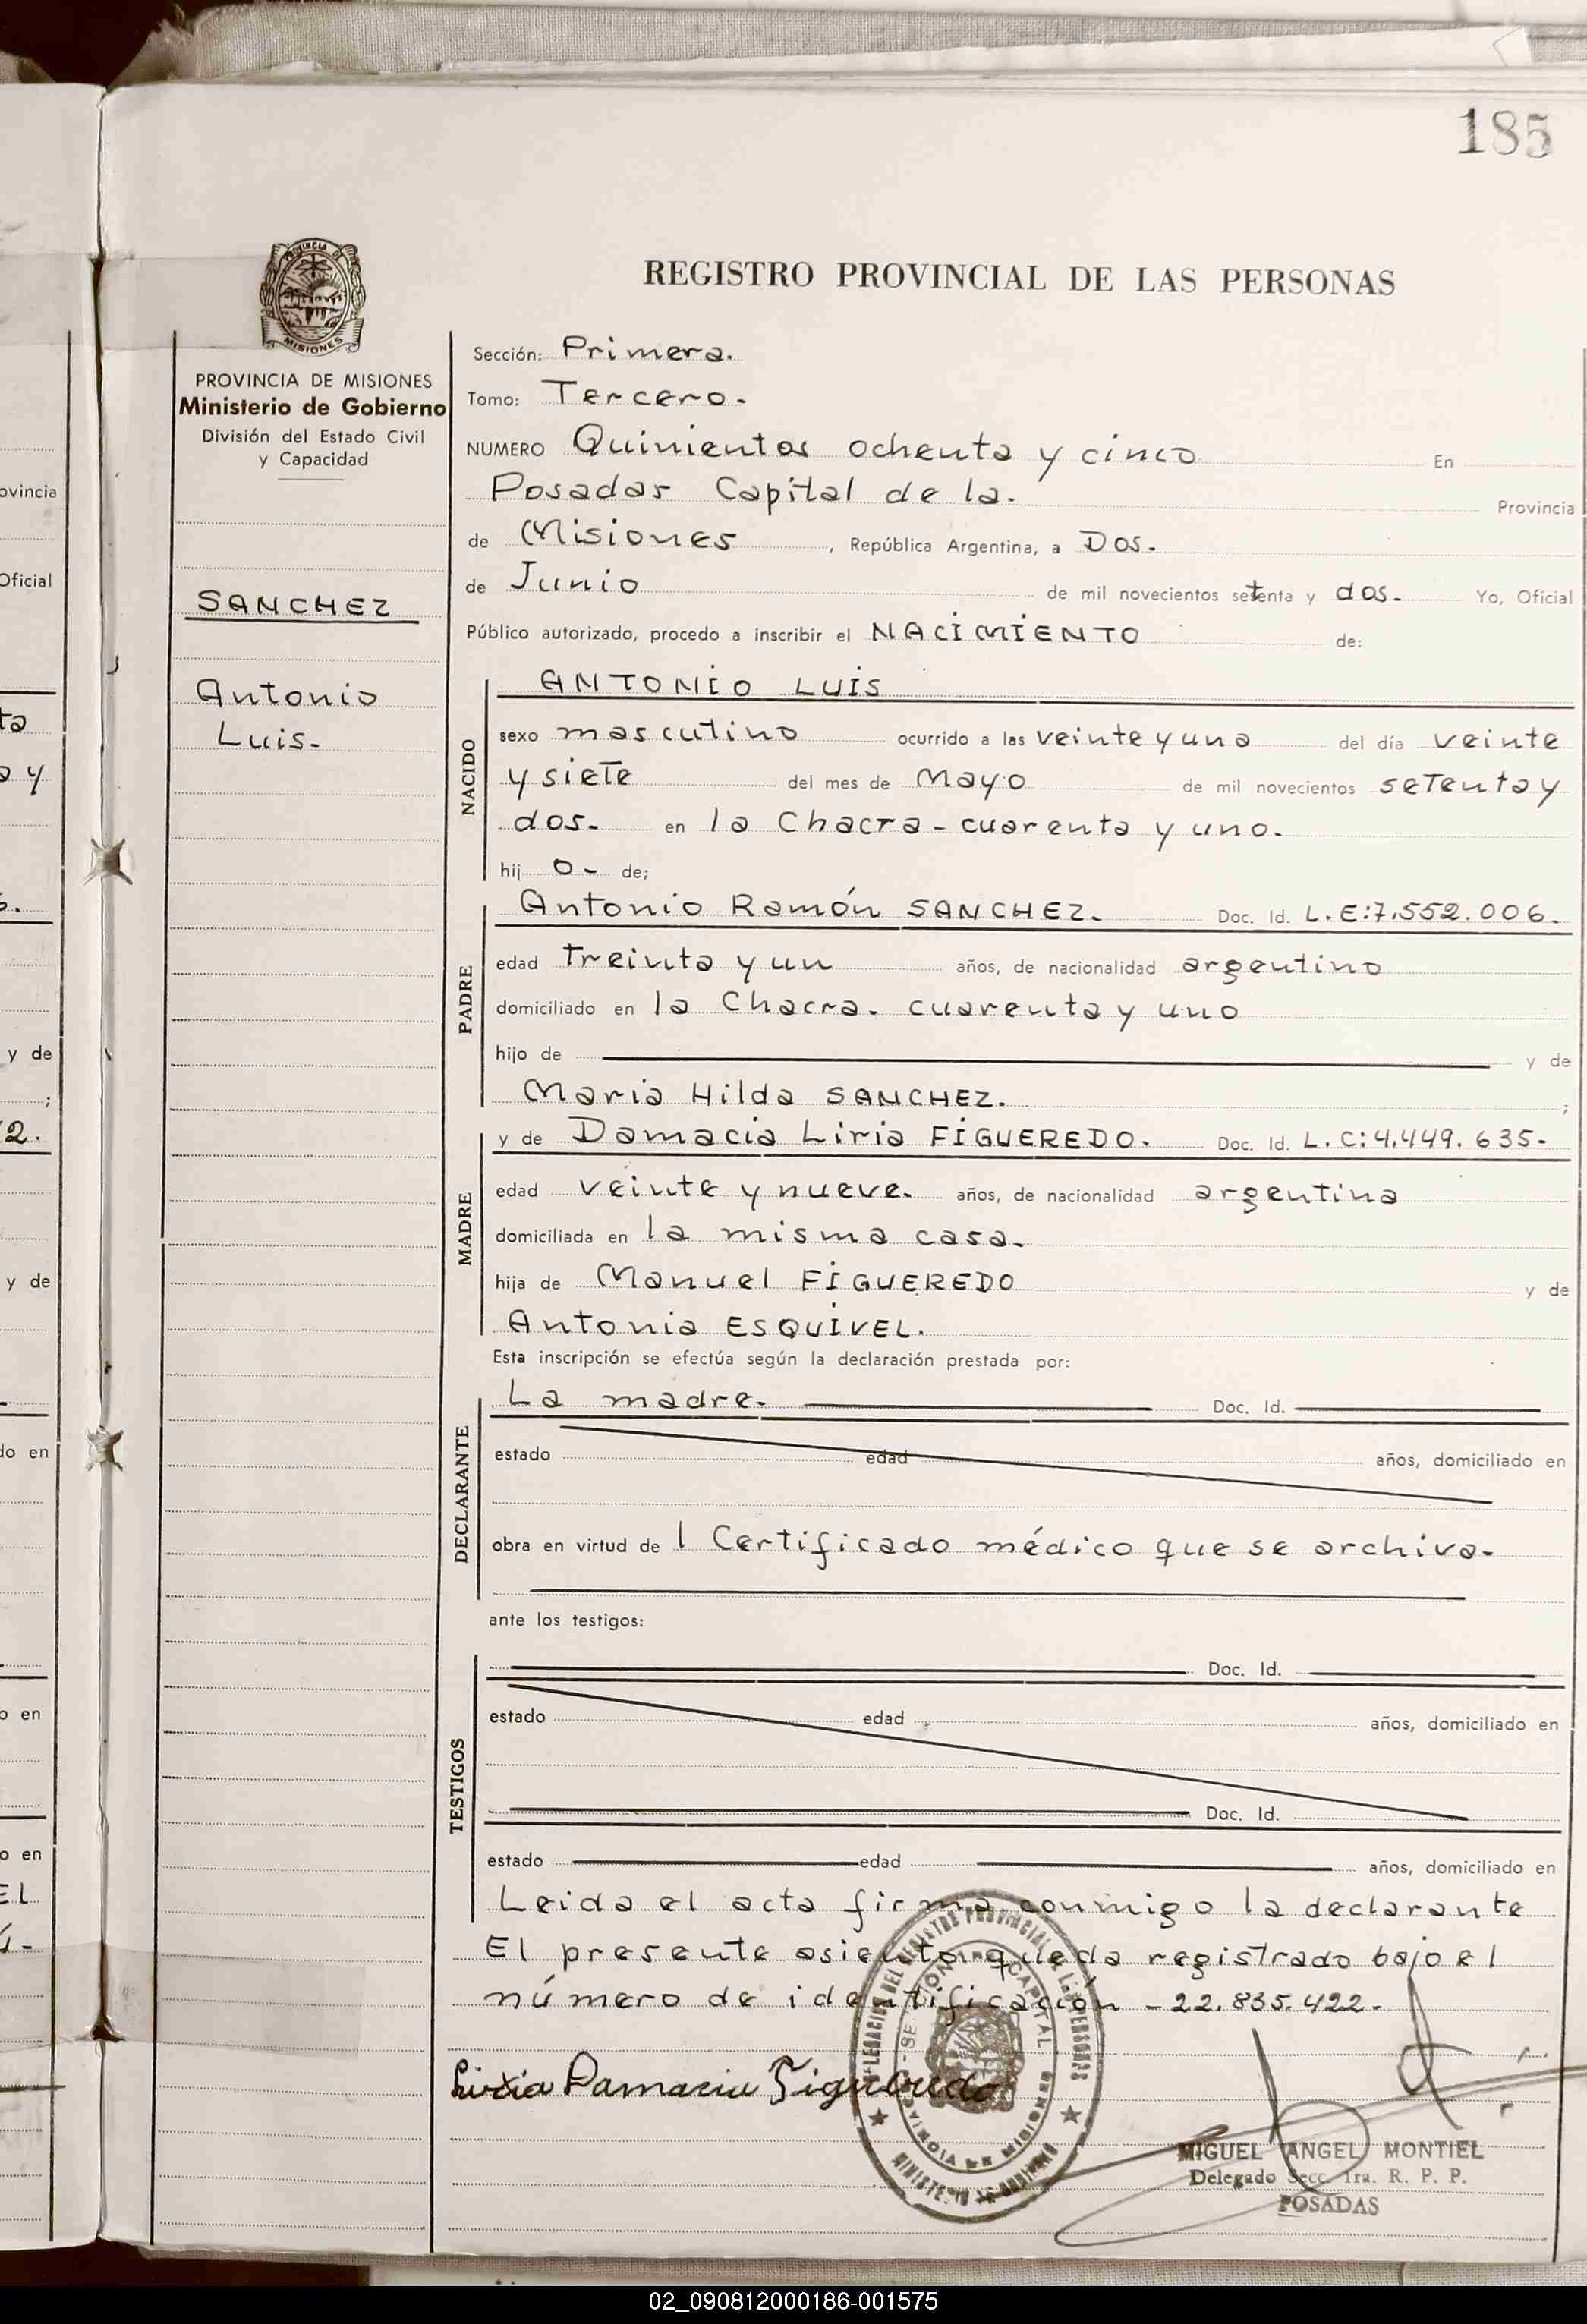 185
PROVINCIA DE
MISIONES
REGISTRO PROVINCIAL DE LAS PERSONAS
PROVINCIA DE MISIONES
Ministerio de Gobierno
División del Estado Civil
y Capacidad
SANCHEZ
Antonio
Luis-
Sección: Primera.
Tomo: Tercero.
NUMERO Quinientos ochenta y cinco En
Posadas Capital de la. Provincia
de Misiones, República Argentina, a Dos.
de Junio de mil novecientos setenta y dos. Yo, Oficial
Público autorizado, procedo a inscribir el NACIMIENTO de:
NACIDO
ANTONIO LUIS
sexo masculino ocurrido a las veinte y una del día veinte
y siete del mes de Mayo de mil novecientos setenta y
dos- en la Chacra - cuarenta y uno.
hij o- de;
PADRE
Antonio Ramón SANCHEZ. Doc. Id. L.E:7.552.006.
edad treinta y un años, de nacionalidad argentino
domiciliado en la Chacra. cuarenta y uno
hijo de y de
Maria Hilda SANCHEZ. ;
MADRE
y de Damacia Liria FIGUEREDO. Doc. Id. L.C:4.449.635-
edad veinte y nueve. años, de nacionalidad argentina
domiciliada en la misma casa.
hija de Manuel FIGUEREDO y de
Antonia ESQUIVEL.
Esta inscripción se efectúa según la declaración prestada por:
DECLARANTE
La madre. Doc. Id.
estado edad años, domiciliado en
obra en virtud de 1 Certificado médico que se archiva.
ante los testigos:
TESTIGOS
Doc. Id.
estado edad años, domiciliado en
Doc. Id.
estado edad años, domiciliado en
Leida el acta firma conmigo la declarante
El presente asiento queda registrado bajo el
número de identificación - 22.835.422.
Liria Damacia Figueredo
MIGUEL ANGEL MONTIEL
Delegado Secc. 1ra. R. P. P.
POSADAS
ovincia
Oficial
ta
o y
y de
;
2.
y de
do en
o en
o en
EL
02_090812000186-001575